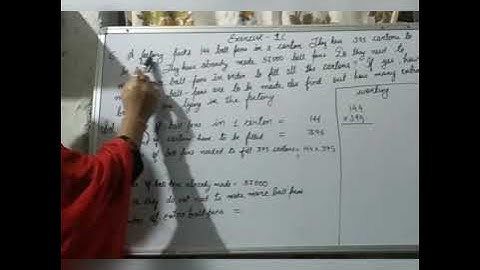 Exercise - 1C
A factory packs 144 ball pens in a carton. They have 395 cartons to
They have already made 57000 ball pens. Do they need to
ball pens in order to fill all the cartons? If yes, how
ball-pens are to be made. Else find out how many extra
lying in the factory
of ball pens in 1 carton = 144
of cartons have to be filled = 395
of ball pens needed to fill 395 cartons = 144 x 395
of ball pens already made = 57000
they do not need to make more ball pens
of extra ball pens =
working
144
x 395